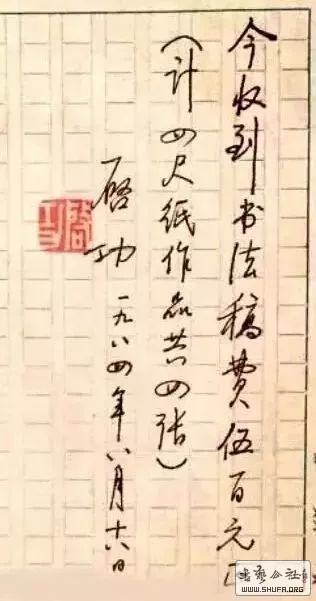 今收到书法稿费伍百元
(计四尺纸作品共四张)
启功
一九八四年八月十六日
启功
书艺公社
WWW.SHUFA.ORG